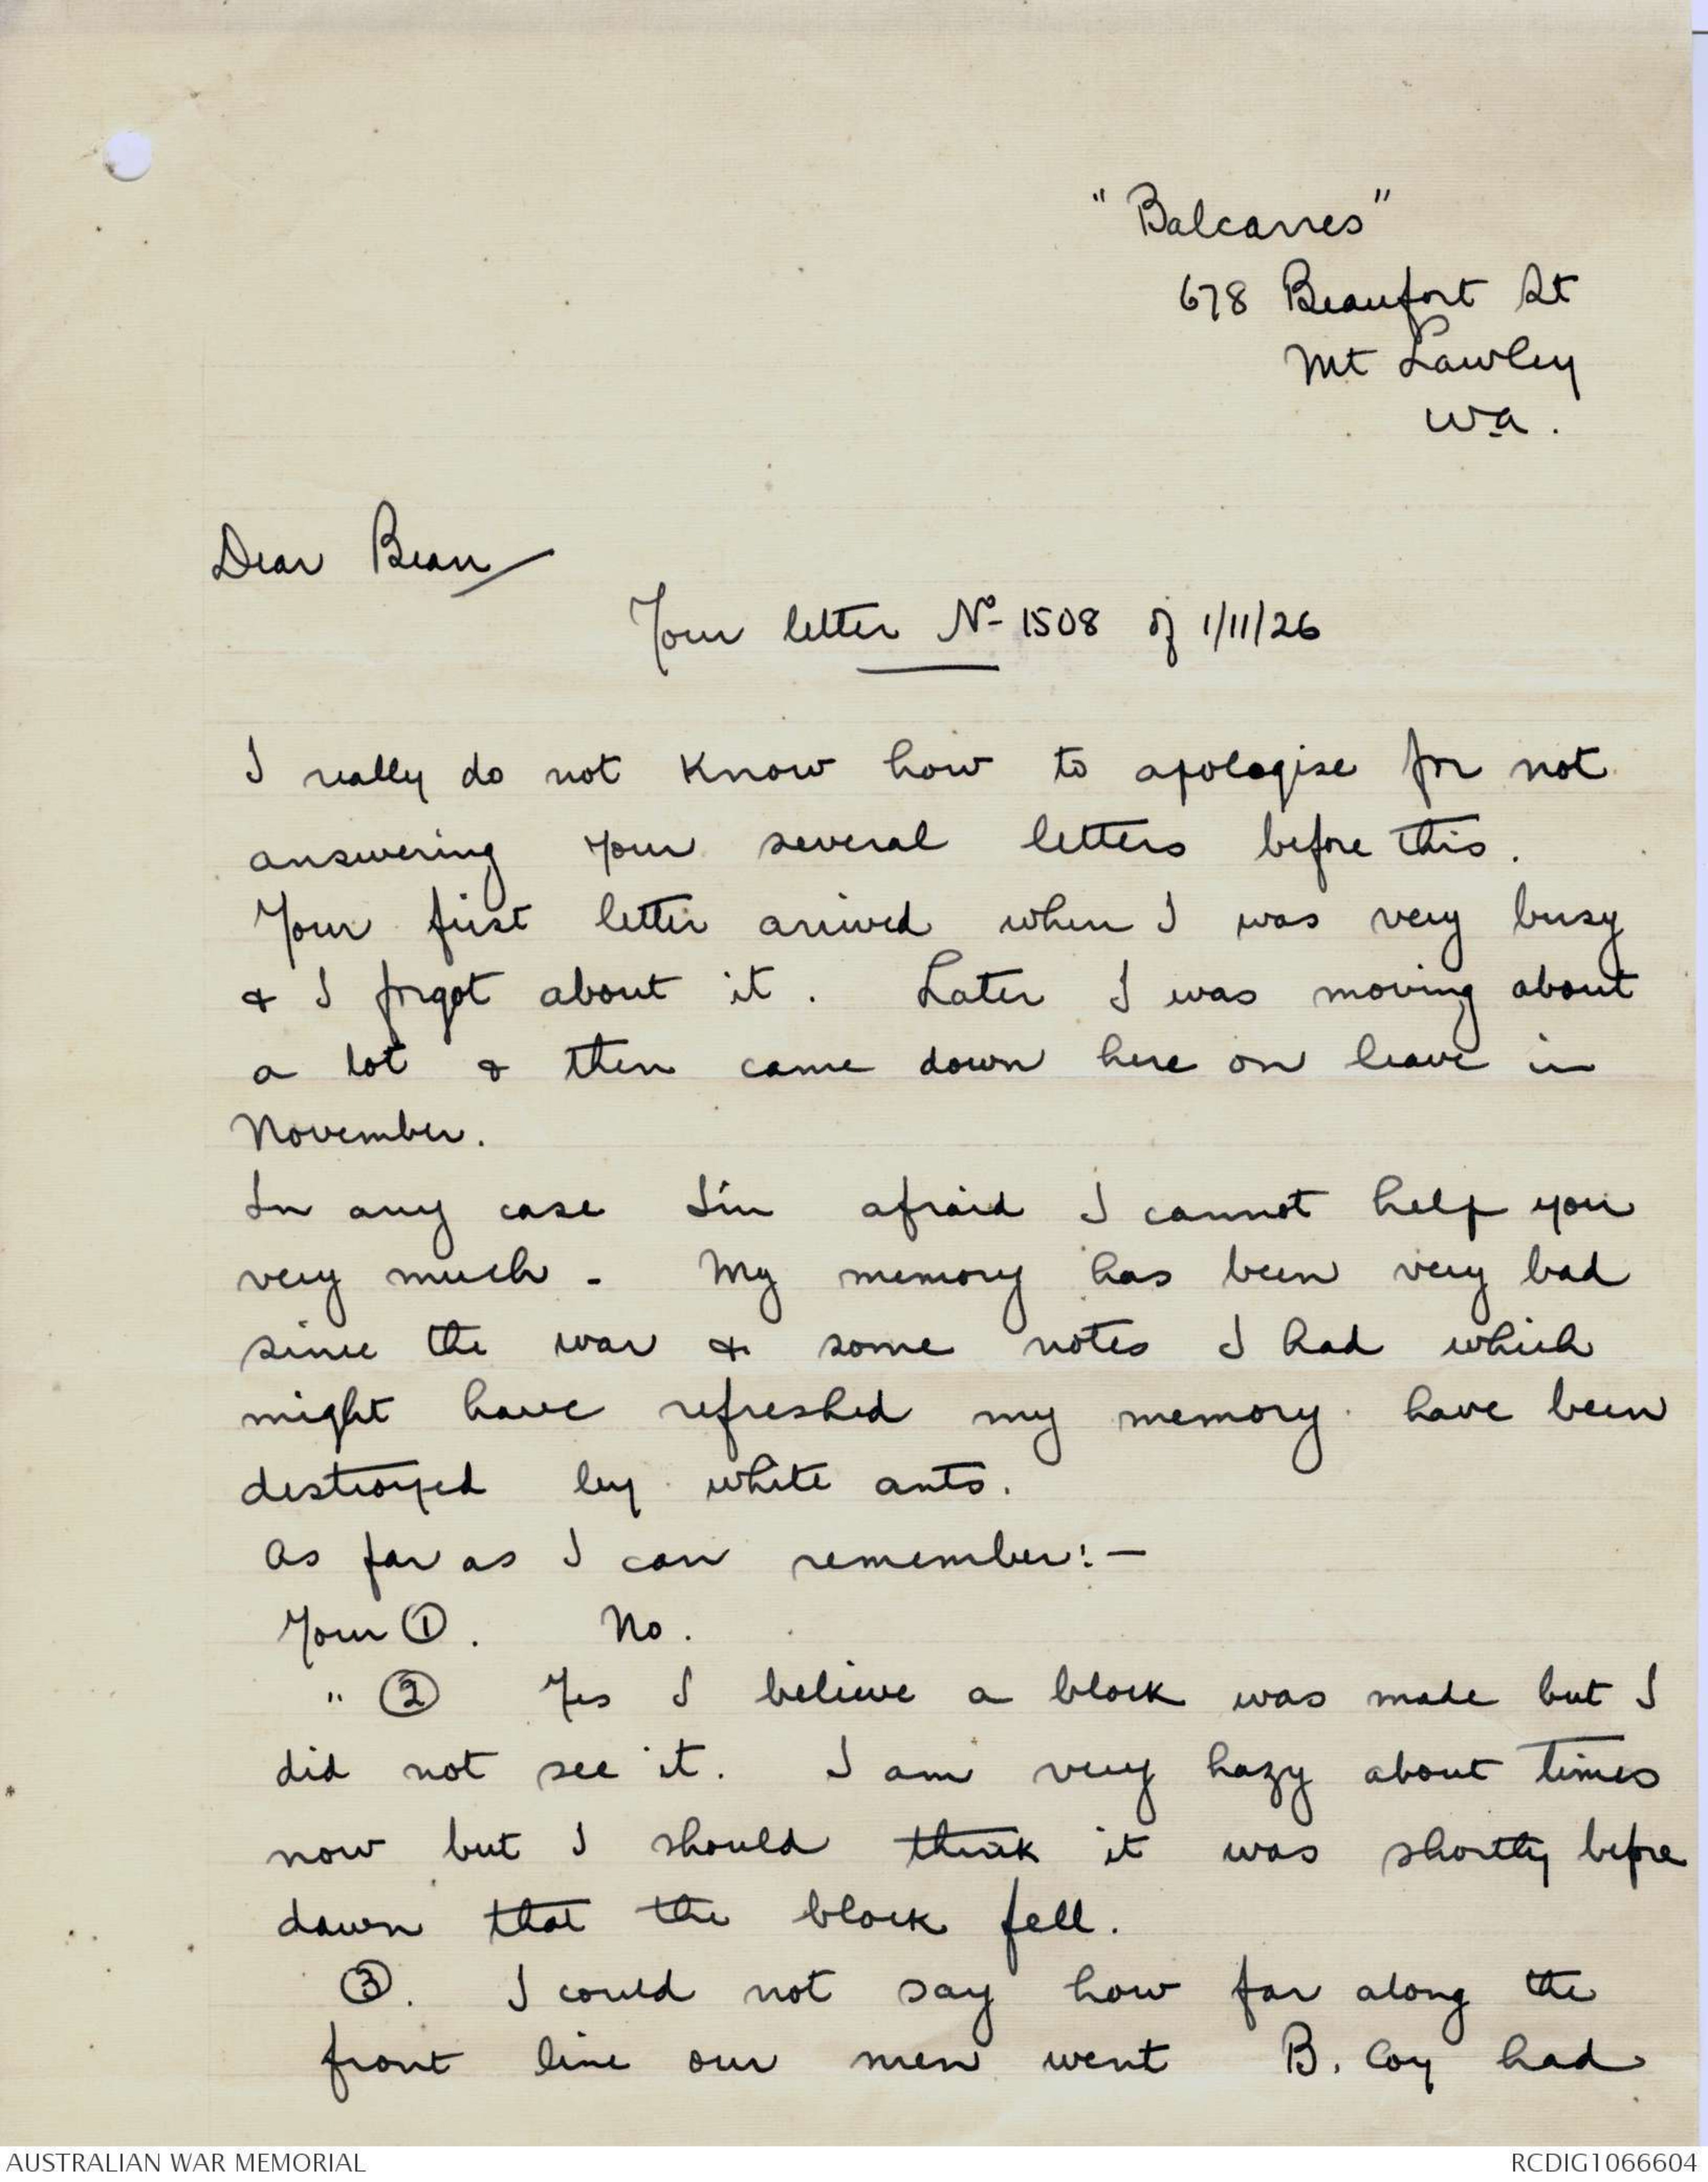 "Balcarres"
678 Beaufort St
Mt Lawley
W.A.
Dear Bean
Your letter No 1508 of 1/11/26
I really do not know how to apologise for not
answering your several letters before this.
Your first letter arrived when I was very busy
& I forgot about it. Later I was moving about
a lot & then came down here on leave in
November.
In any case I'm afraid I cannot help you
very much - My memory has been very bad
since the war & some notes I had which
might have refreshed my memory have been
destroyed by white ants.
As far as I can remember:-
Your ①. No.
" ② Yes I believe a block was made but I
did not see it. I am very hazy about times
now but I should think it was shortly before
dawn that the block fell.
③. I could not say how far along the
front line our men went B. Coy had
AUSTRALIAN WAR MEMORIAL
RCDIG1066604